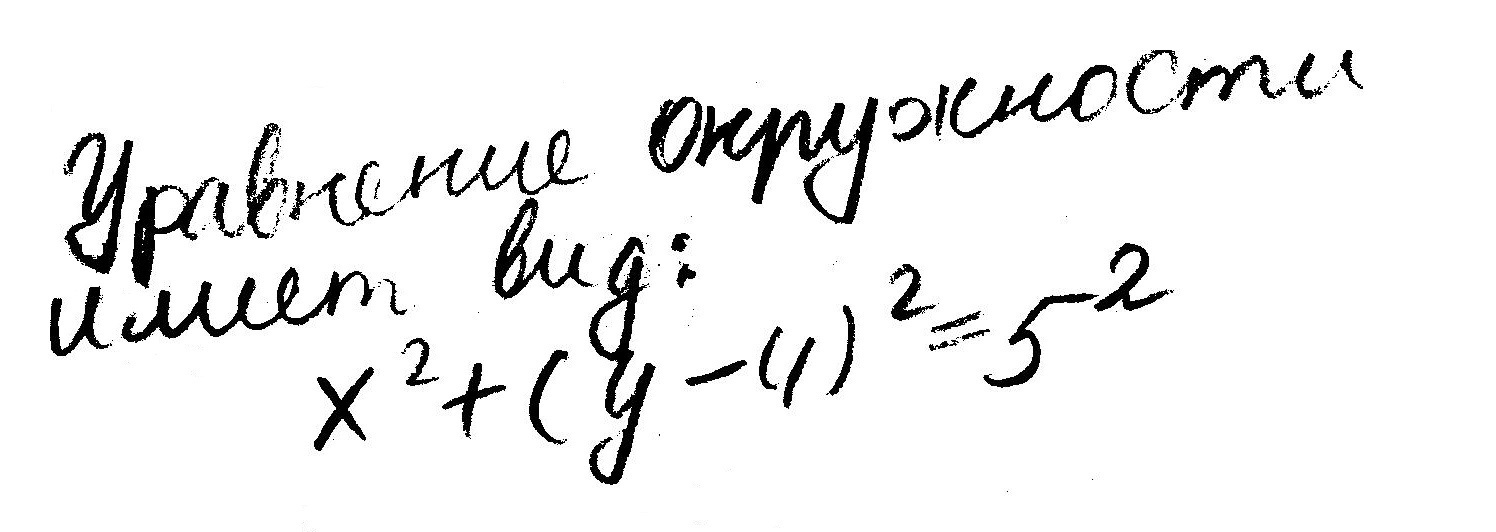 Уравнение окружности
имеет вид:
x²+(y-4)²=5²